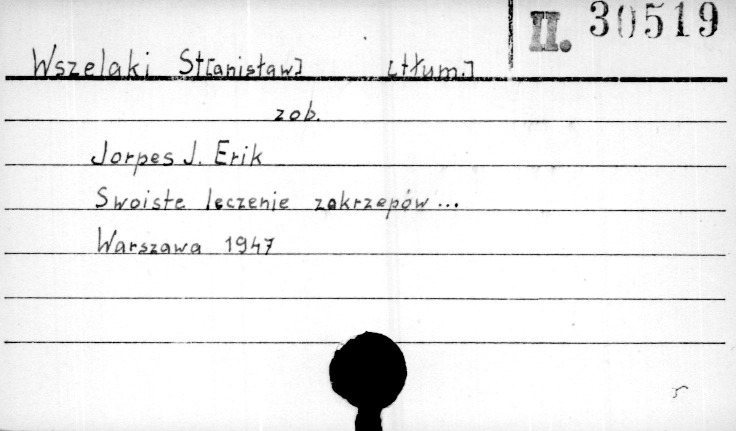 II. 30519
Wszelaki St[anisław] [tłum.]
zob.
Jorpes J. Erik
Swoiste leczenie zakrzepów...
Warszawa 1947